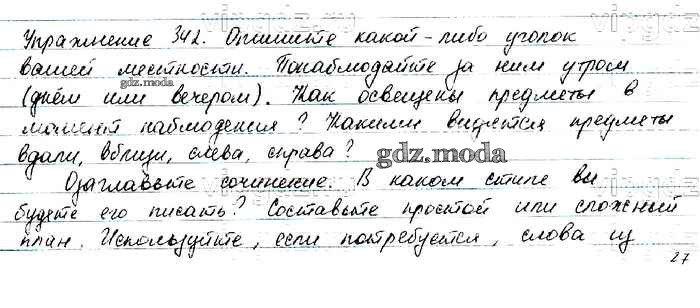 Упражнение 342. Опишите какой-либо уголок
вашей местности. Понаблюдайте за ним утром
gdz.moda
(днём или вечером). Как освещены предметы в
момент наблюдения? Какими видятся предметы
вдали, вблизи, слева, справа?
gdz.moda
Озаглавьте сочинение. В каком стиле вы
будете его писать? Составьте простой или сложный
план. Используйте, если потребуется, слова из
27